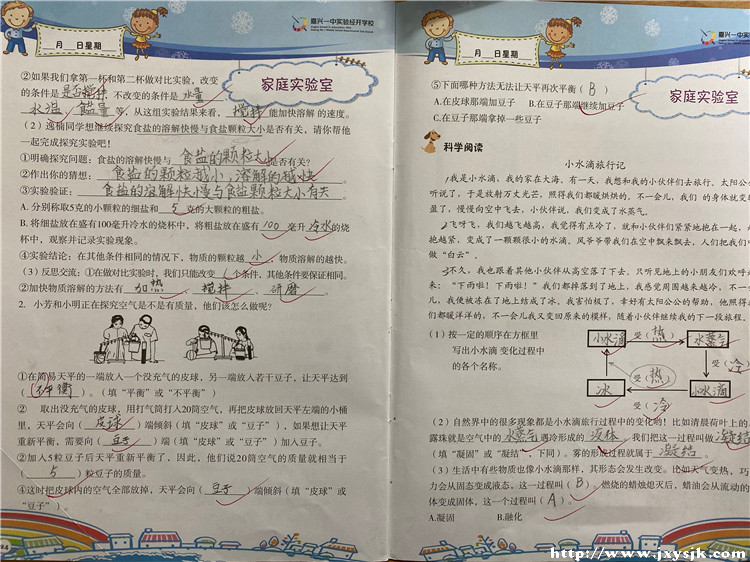 嘉兴一中实验经开学校
月 日星期
家庭实验室
②如果我们拿第一杯和第二杯做对比实验，改变
的条件是是否搅拌 不改变的条件是水量
水温 食盐量等，从这组实验结果来看，搅拌能加快溶解的速度。
（2）逸楠同学想继续探究食盐的溶解快慢与食盐颗粒大小是否有关，请你帮他
一起完成探究实验吧！
①明确探究问题：食盐的溶解快慢与食盐的颗粒大小是否有关？
②作出你的猜想：食盐的颗粒越小，溶解的越快。
③实验验证：食盐的溶解快慢与食盐颗粒大小有关
A. 分别称取5克的小颗粒的细盐和5克的大颗粒的粗盐。
B. 将细盐放在盛有100毫升冷水的烧杯中，将粗盐放在盛有100毫升冷水的烧
杯中，观察并记录实验现象。
④实验结论：在其他条件相同的情况下，物质的颗粒越小，物质溶解的越快。
（3）反思交流：①在做对比实验时，我们只能改变1个条件，其他条件要保证相同。
②加快物质溶解的方法有加热、搅拌、研磨。
2. 小芳和小明正在探究空气是不是有质量，他们该怎么做呢？
①在简易天平的一端放入一个没充气的皮球，另一端放入若干豆子，让天平达到
（平衡）。（填“平衡”或“不平衡”）
② 取出没充气的皮球，用打气筒打入20筒空气，再把皮球放回天平左端的小桶
里，天平会向（皮球）端倾斜（填“皮球”或“豆子”），如果想让天平
重新平衡，需要向（豆子）端（填“皮球”或“豆子”）加入豆子。
②加入5粒豆子后天平重新平衡了，因此，他们说20筒空气的质量就相当于
（5）粒豆子的质量。
④这时把皮球内的空气全部放掉，天平会向（豆子）端倾斜（填“皮球”或
“豆子”）。
嘉兴一中实
月 日星期
家庭实验室
⑤下面哪种方法无法让天平再次平衡（B）
A.在皮球那端加豆子 B.在豆子那端继续加豆子
C.在豆子那端拿掉一些豆子
科学阅读
小水滴旅行记
1我是小水滴，我的家在大海，有一天，我想和我的小伙伴们去旅行。太阳公
听说了，于是放射万丈光芒，照得我们都暖烘烘的，不一会儿，我们的身体就变
盈了，慢慢向空中飞去，小伙伴说，我们变成了水蒸气。
2飞呀飞，我们越飞越高，我觉得有点冷了，就和小伙伴们紧紧地抱在一起，
抱越紧，变成了一颗颗很小的水滴，风爷爷带我们在空中飘来飘去，人们把我们
做“白云”。
3不久，我也跟着其他小伙伴从高空落了下去，只听见地上的小朋友们欢呼
来：“下雨啦！下雨啦！”我们都掉落到了地上，我感觉周围越来越冷，不一会
儿，我便被冻在了地上结成了冰，我害怕极了，幸好有太阳公公的帮助，他照得
们都暖洋洋的，不一会儿我又变回原来的模样，随着小伙伴继续我的下一段旅程。
（1）按一定的顺序在方框里
写出小水滴 变化过程中
的各个名称。
小水滴 受（热） 水蒸气
受（热） 受（冷
冰 受（冷 小水滴
（2）自然界中的很多现象都是小水滴旅行过程中的变化哟！比如清晨荷叶上的
露珠就是空气中的水蒸气遇冷形成的液体，我们把这一过程叫做凝结
（填“凝固”或“凝结”，下同）。雾的形成过程就属于凝结。
（3）生活中有些物质也像小水滴那样，其形态会发生改变。比如天气变热，巧
力会从固态变成液态，这一过程叫（B）。燃烧的蜡烛熄灭后，蜡油会从流动的
体变成固体，这一个过程叫（A）。
A.凝固 B.融化
http://www.jxysjk.com